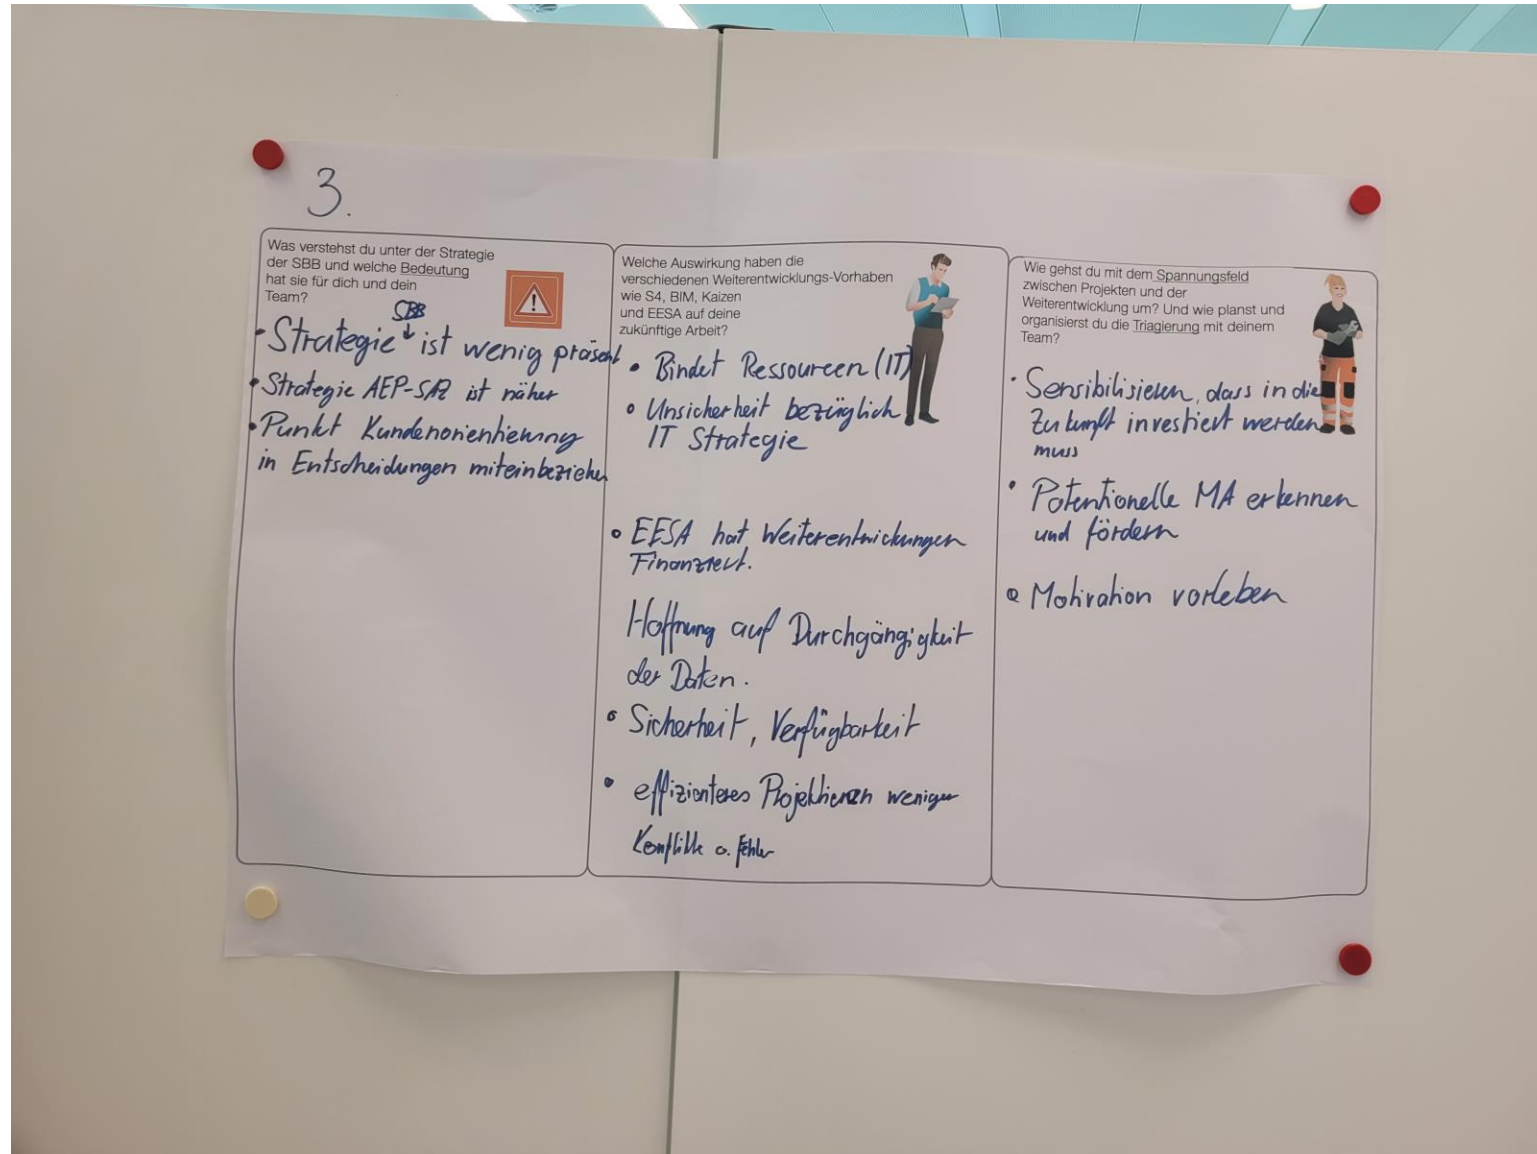 3.
Was verstehst du unter der Strategie
der SBB und welche Bedeutung
hat sie für dich und dein
Team?
SBB
• Strategie ist wenig präsent
• Strategie AEP-SAZ ist näher
• Punkt Kundenorientierung
in Entscheidungen miteinbeziehen
Welche Auswirkung haben die
verschiedenen Weiterentwicklungs-Vorhaben
wie S4, BIM, Kaizen
und EESA auf deine
zukünftige Arbeit?
• Bindet Ressourcen (IT)
• Unsicherheit bezüglich
IT Strategie
• EESA hat Weiterentwicklungen
Finanziert.
Hoffnung auf Durchgängigkeit
der Daten.
• Sicherheit, Verfügbarkeit
• effizienteres Projektieren weniger
Konflikte o. Fehler
Wie gehst du mit dem Spannungsfeld
zwischen Projekten und der
Weiterentwicklung um? Und wie planst und
organisierst du die Triagierung mit deinem
Team?
• Sensibilisieren, dass in die
Zukunft investiert werden
muss
• Potentionelle MA erkennen
und fördern
• Motivation vorleben